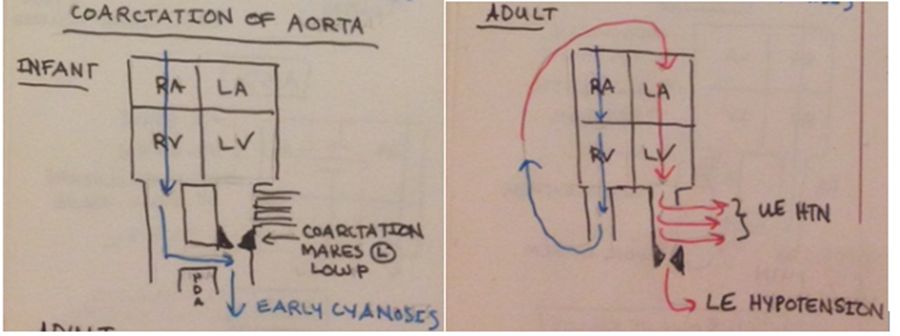 COARCTATION OF AORTA
INFANT
RA LA
RV LV
COARCTATION
MAKES Ⓛ
LOW P
PDA
EARLY CYANOSIS
ADULT
RA LA
RV LV
UE HTN
LE HYPOTENSION